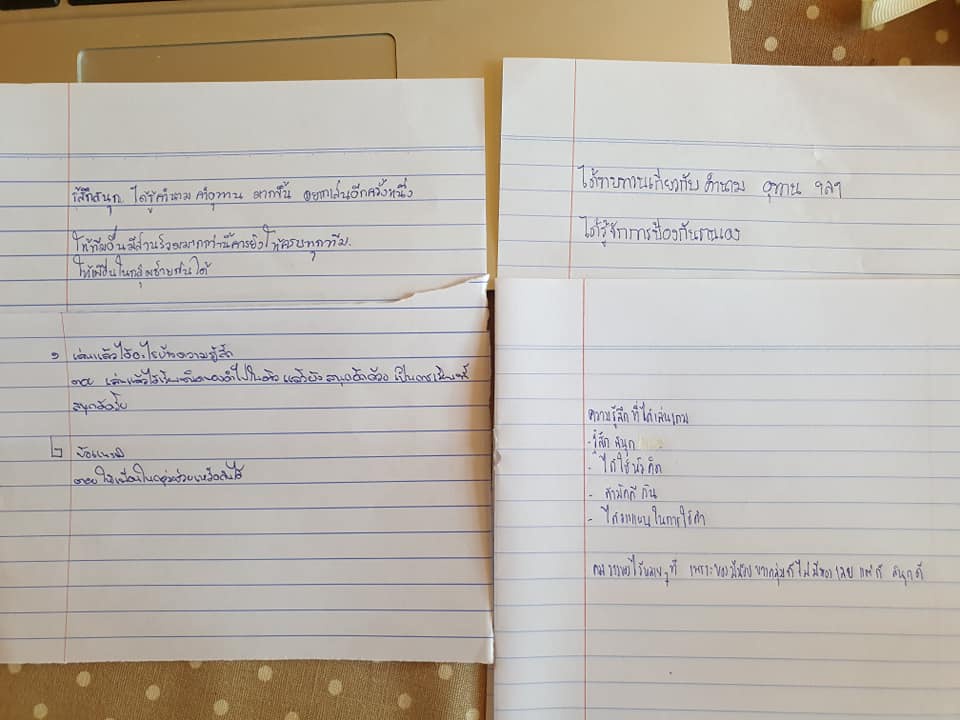 รู้สึกสนุก ได้รู้คำนาม คำอุทาน มากขึ้น อยากเล่นอีกครั้งหนึ่ง
ให้ทีมอื่นมีส่วนร่วมมากกว่านี้ควรยิงให้ครบทุกทีม.
ให้เพื่อนในกลุ่มช่วยกันได้
ได้ทบทวนเกี่ยวกับ คำนาม อุทาน ฯลฯ
ได้รู้จักการป้องกันตนเอง
๑ เล่นแล้วได้อะไรบ้างความรู้สึก
ตอบ เล่นแล้วได้ ไปในตัว แล้วยังสนุกอีกด้วย เป็นการเรียนที่
สนุก
๒ ข้อแนะนำ
ตอบ ให้เพื่อนในกลุ่มช่วยเหลือกันได้
ความรู้สึก ที่ได้เล่นเกม
- รู้สึก สนุก
- ได้ใช้ความคิด
- สามัคคี กัน
- ได้ ในการใช้คำ
ของไว้หลายๆที่ เพราะ บางกลุ่มก็ไม่มีของเลย แต่ก็ สนุกดี